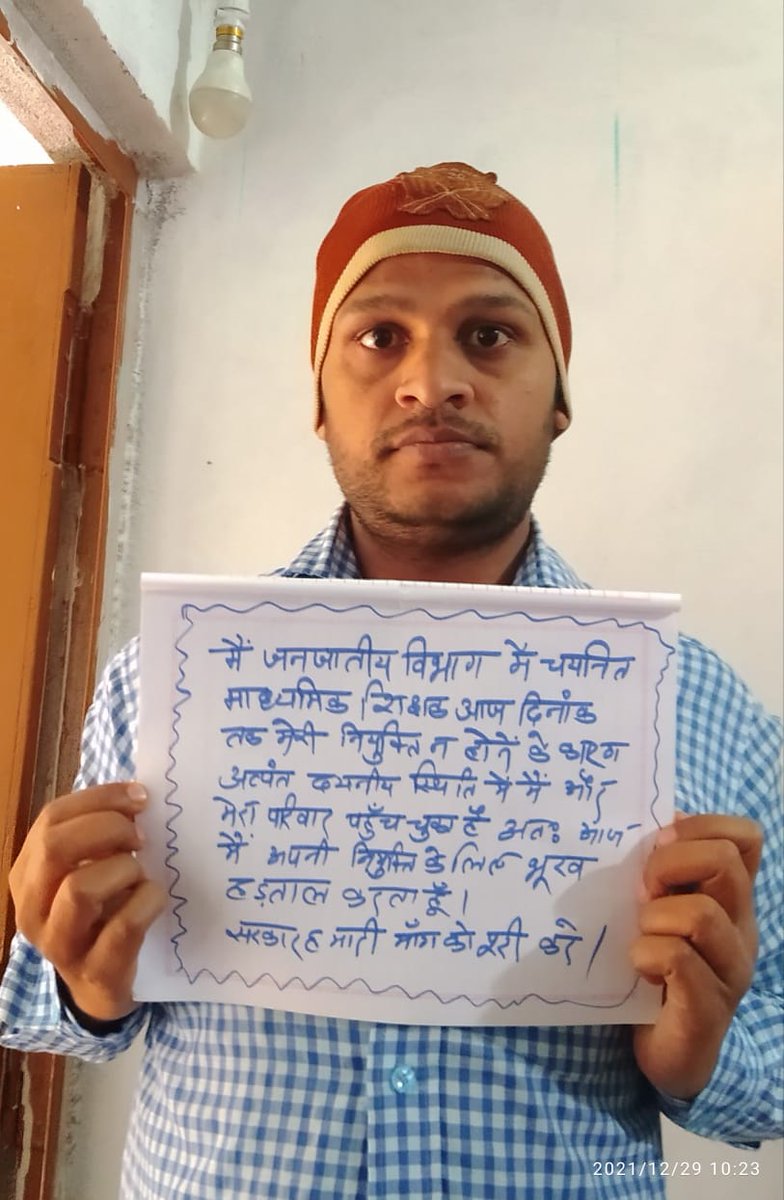 मैं जनजातीय विभाग मै चयनित
माध्यमिक शिक्षक आज दिनांक
तक मेरी नियुक्ति न होनें के कारण
अत्यंत दयनीय स्थिति में मैं और
मेरा परिवार पहुँच चुका है अतः आज
मैं अपनी नियुक्ति के लिए भूख
हड़ताल करता हूँ।
सरकार हमारी माँग को पूरी करे।
2021/12/29 10:23